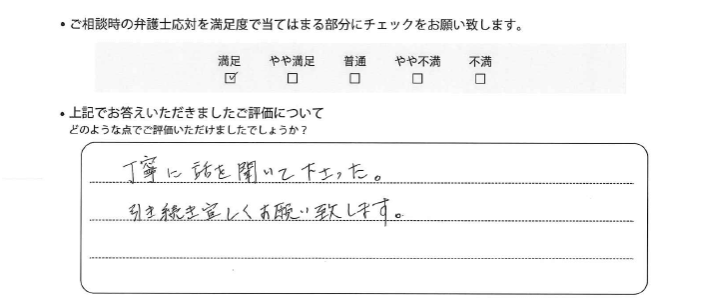 • ご相談時の弁護士応対を満足度で当てはまる部分にチェックをお願い致します。
満足 やや満足 普通 やや不満 不満
☑ □ □ □ □
• 上記でお答えいただきましたご評価について
どのような点でご評価いただけましたでしょうか？
丁寧に話を聞いて下さった。
引き続き宜しくお願い致します。